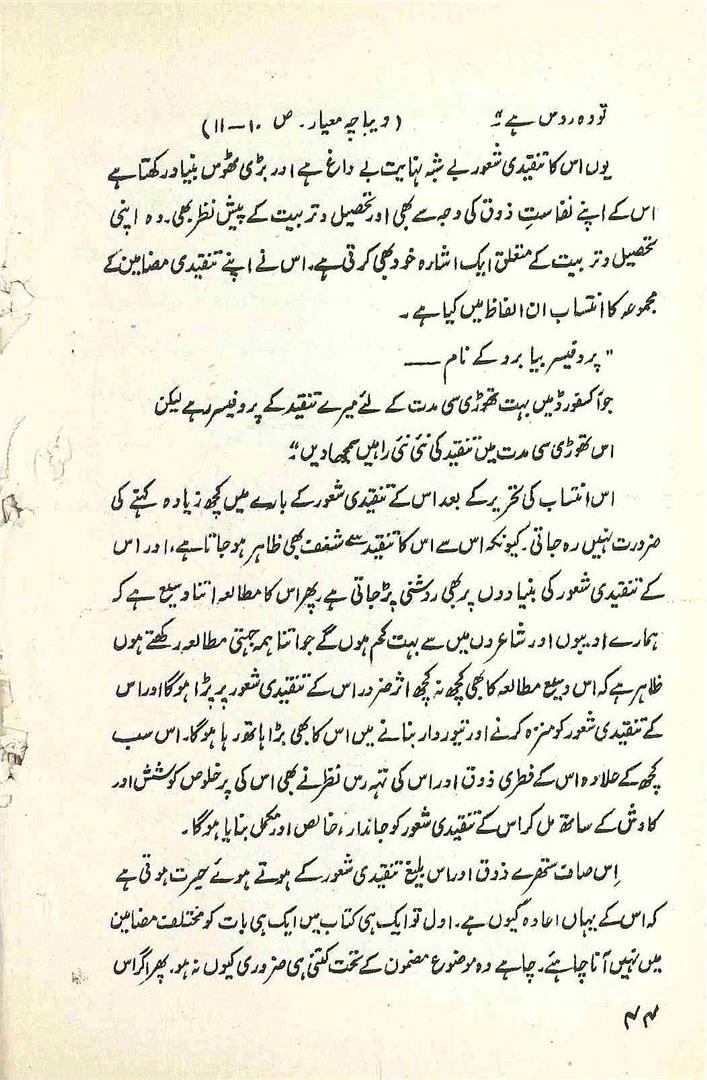 تو وہ روس ہے"۔ (دیباچہ معیار۔ ص ۱۰-۱۱)
یوں اس کا تنقیدی شعور بے شبہ نہایت بے داغ ہے اور بڑی ٹھوس بنیاد رکھتا ہے
اس کے اپنے نفاستِ ذوق کی وجہ سے بھی اور تحصیل و تربیت کے پیش نظر بھی۔ وہ اپنی
تحصیل و تربیت کے متعلق ایک اشارہ خود بھی کرتی ہے۔ اس نے اپنے تنقیدی مضامین کے
مجموعہ کا انتساب ان الفاظ میں کیا ہے۔
"پروفیسر بیا برو کے نام ——
جو آکسفورڈ میں بہت تھوڑی سی مدت کے لئے میرے تنقید کے پروفیسر رہے لیکن
اس تھوڑی سی مدت میں تنقید کی نئی نئی راہیں سمجھا دیں"۔
اس انتساب کی تحریر کے بعد اس کے تنقیدی شعور کے بارے میں کچھ زیادہ کہنے کی
ضرورت نہیں رہ جاتی۔ کیونکہ اس سے اس کا تنقید سے شغف بھی ظاہر ہو جاتا ہے، اور اس
کے تنقیدی شعور کی بنیادوں پر بھی روشنی پڑ جاتی ہے۔ پھر اس کا مطالعہ اتنا وسیع ہے کہ
ہمارے ادیبوں اور شاعروں میں سے بہت کم ہوں گے جو اتنا ہمہ جہتی مطالعہ رکھتے ہوں
ظاہر ہے کہ اس وسیع مطالعہ کا بھی کچھ نہ کچھ اثر ضرور اس کے تنقیدی شعور پر پڑا ہوگا اور اس
کے تنقیدی شعور کو منزہ کرنے اور تیوردار بنانے میں اس کا بھی بڑا ہاتھ رہا ہوگا۔ اس سب
کچھ کے علاوہ اس کے فطری ذوق اور اس کی تہہ رس نظر نے بھی اس کی پر خلوص کوشش اور
کاوش کے ساتھ مل کر اس کے تنقیدی شعور کو جاندار، خالص اور مکمل بنایا ہوگا۔
اِس صاف ستھرے ذوق اور اس بلیغ تنقیدی شعور کے ہوتے ہوئے حیرت ہوتی ہے
کہ اس کے یہاں اعادہ کیوں ہے۔ اول تو ایک ہی کتاب میں ایک ہی بات کو مختلف مضامین
میں نہیں آنا چاہئے۔ چاہے وہ موضوع مضمون کے تحت کتنی ہی ضروری کیوں نہ ہو۔ پھر اگر اس
۴۴